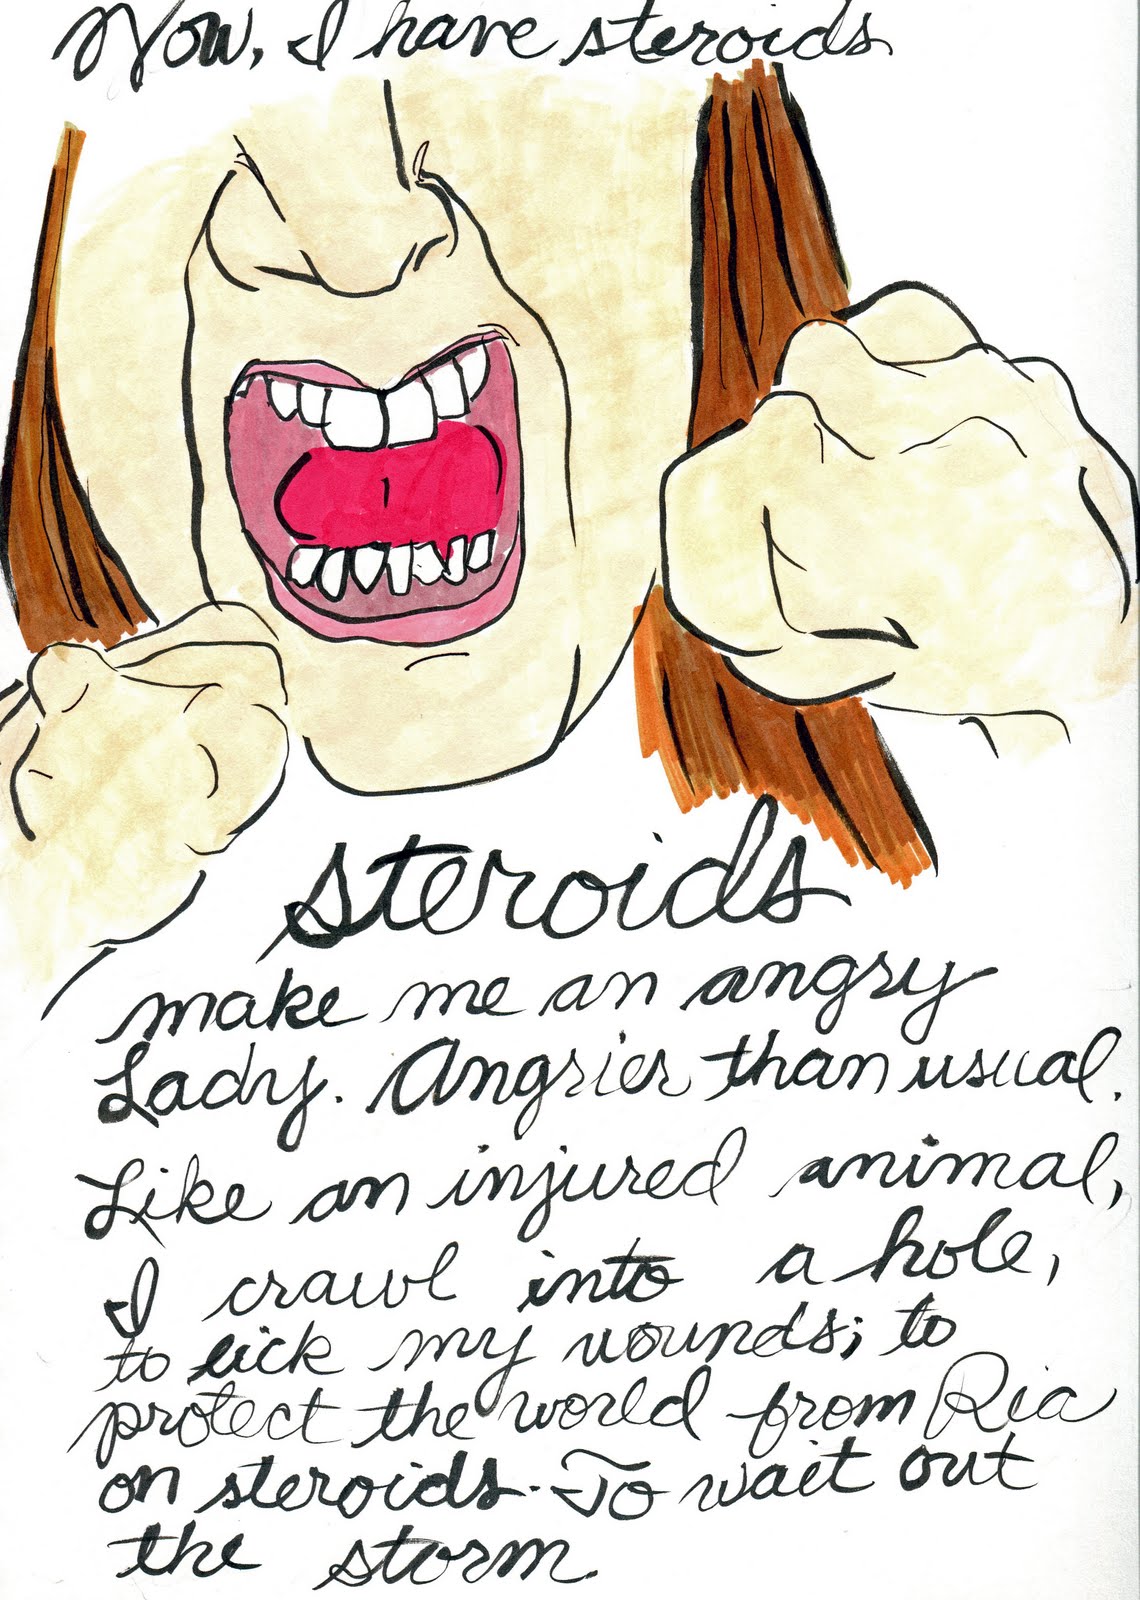 Now, I have steroids
steroids
make me an angry
Lady. Angrier than usual.
Like an injured animal,
I crawl into a hole,
to lick my wounds; to
protect the world from Ria
on steroids. To wait out
the storm.